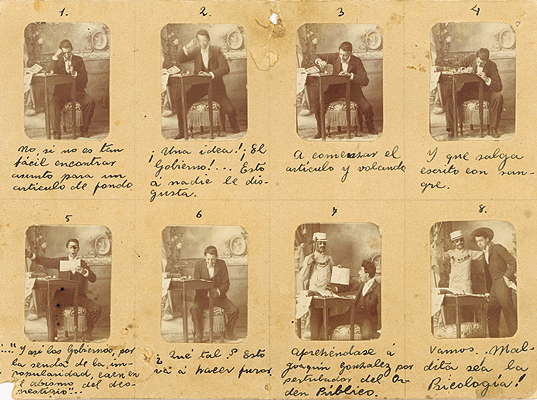 1.
No, si no es tan
fácil encontrar
asunto para un
artículo de fondo.
2.
¡Una idea! ¡El
Gobierno!... Esto
á nadie le dis-
gusta.
3
A comenzar el
artículo y volando
4
Y que salga
escrito con san-
gre.
5
..." Y así los Gobiernos, por
la senda de la im-
popularidad, caen en
el abismo del des-
prestigio"...
6
¿Qué tal? Esto
vá á hacer furor.
7
Aprehéndase á
Joaquin Gonzalez por
perturbador del Or-
den Público.
8.
Vamos. ¡Mal-
dita sea la
Psicología!